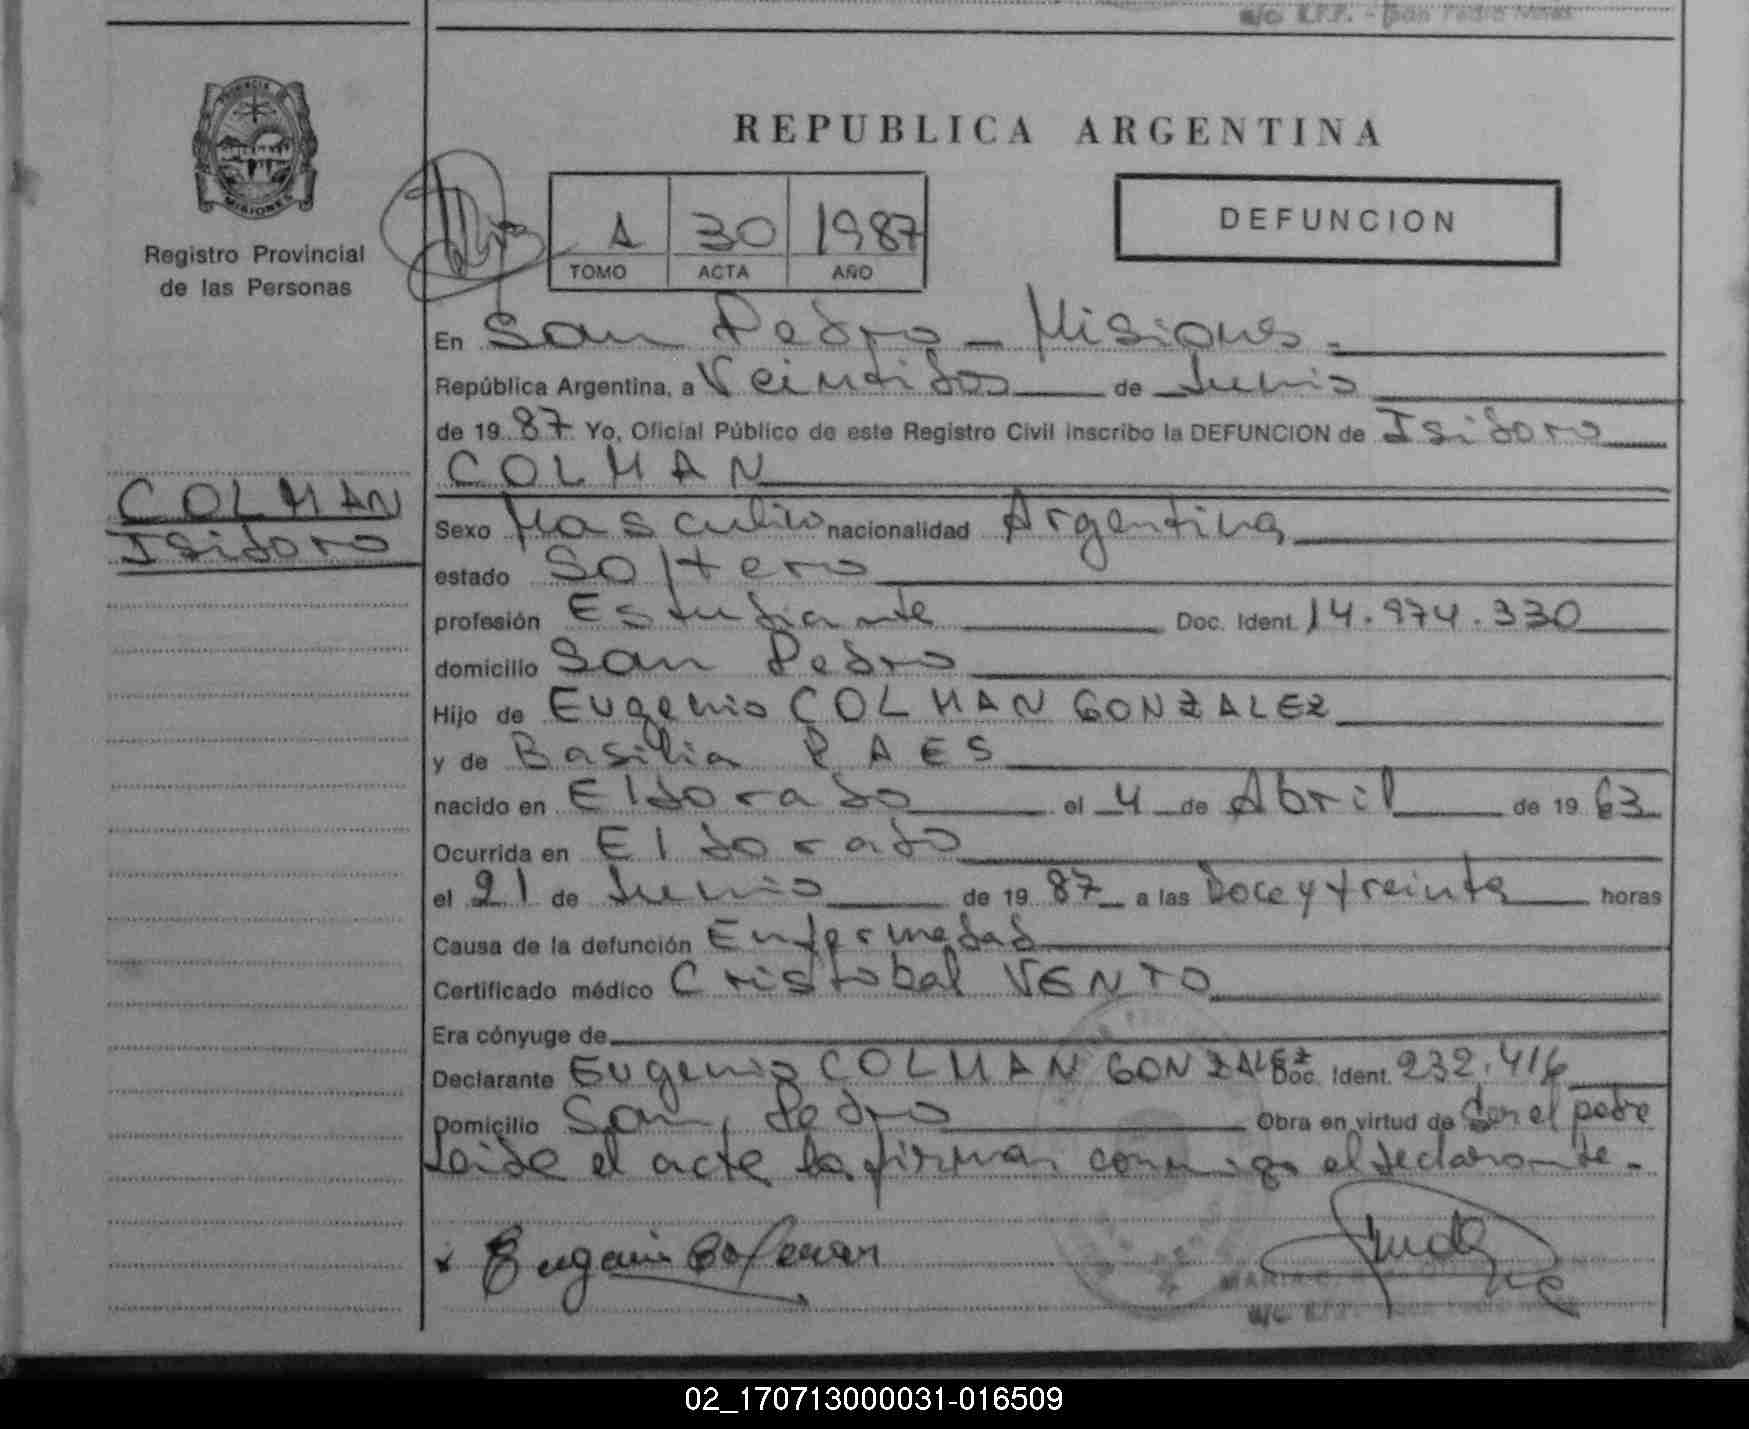 REPUBLICA ARGENTINA
PROVINCIA DE
MISIONES
Registro Provincial
de las Personas
1 30 1987
TOMO ACTA AÑO
DEFUNCION
En San Pedro - Misiones.-
República Argentina, a Veintidos de Junio
de 1987 Yo, Oficial Público de este Registro Civil inscribo la DEFUNCION de Isidoro
COLMAN
COLMAN
Isidoro
Sexo Masculino nacionalidad Argentina
estado Soltero
profesión Estudiante Doc. Ident. 14.974.330
domicilio San Pedro
Hijo de Eugenio COLMAN GONZALEZ
y de Basilia PAES
nacido en Eldorado el 4 de Abril de 1963
Ocurrida en Eldorado
el 21 de Junio de 1987 a las Doce y treinta horas
Causa de la defunción Enfermedad
Certificado médico Cristobal VENTO
Era cónyuge de
Declarante Eugenio COLMAN GONZALEZ Doc. Ident. 232.416
Domicilio San Pedro Obra en virtud de Ser el padre
Leida el acta la firma conmigo el declarante.-
Eugenio Colman
02_170713000031-016509